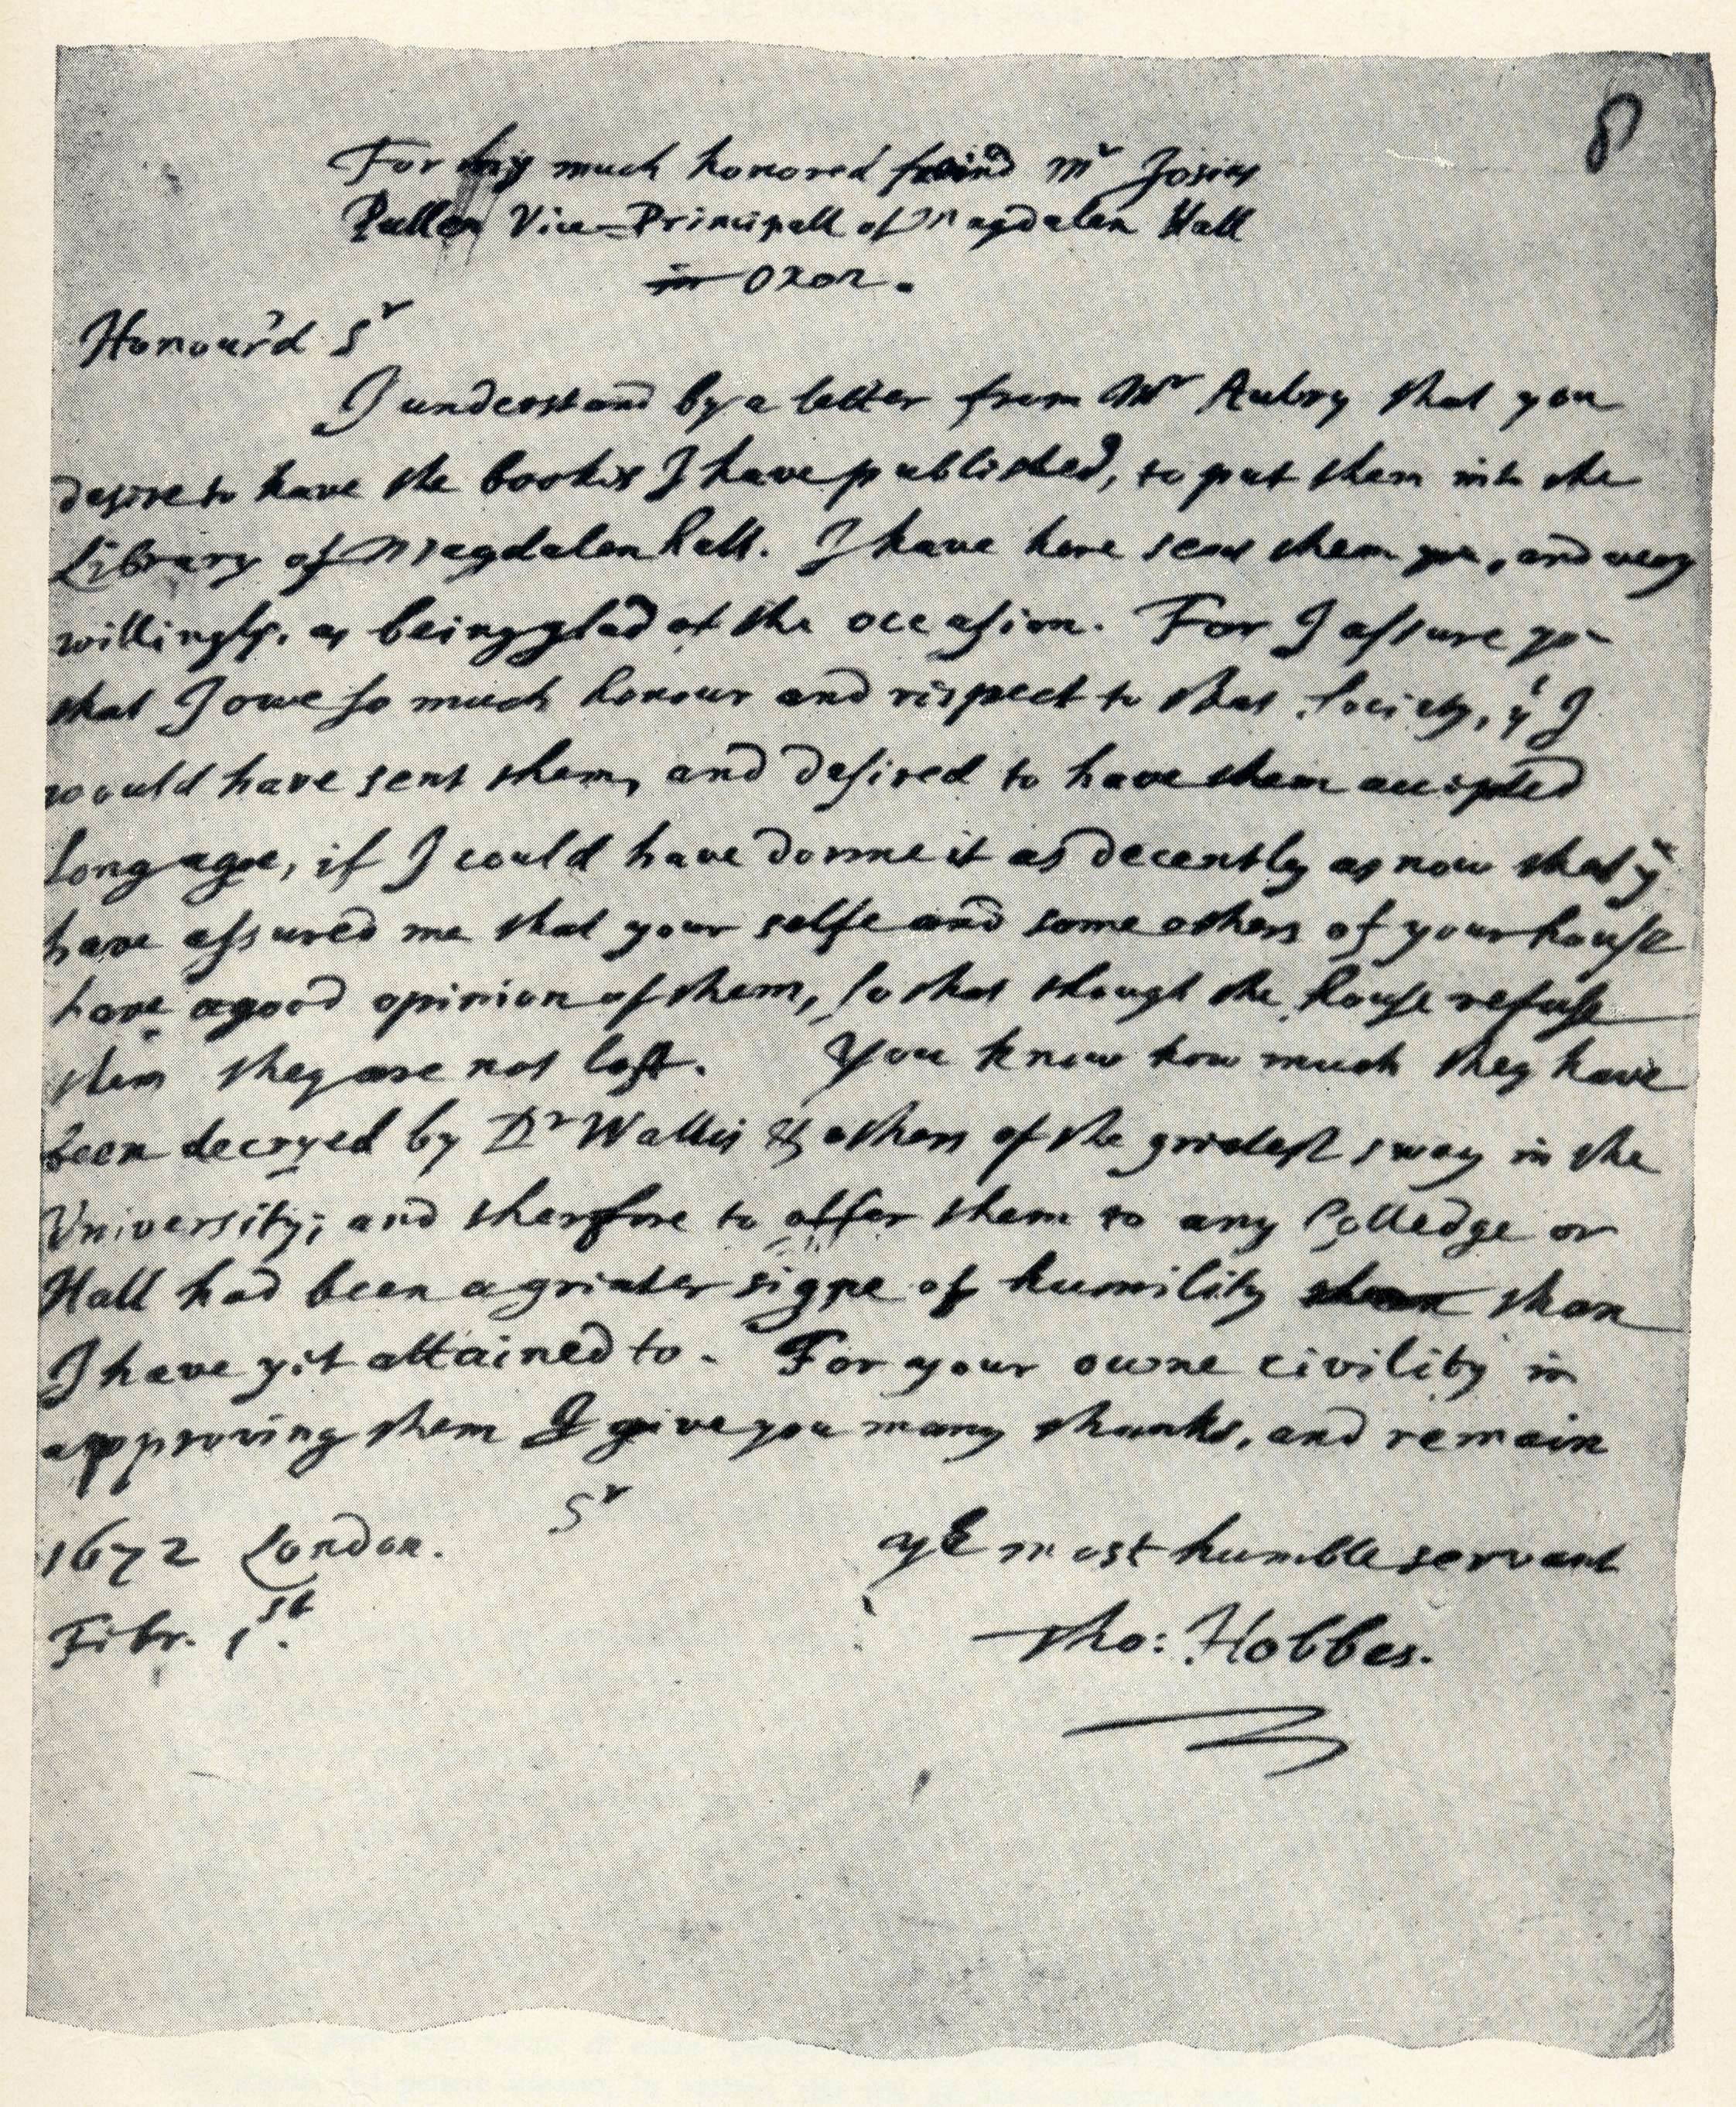 8
For my much honored freind Mr Josias
Pullen Vice-Principall of Magdalen Hall
in Oxon.
Honour'd Sr
I understand by a letter from Mr Aubry that you
desire to have the bookes I have published, to put them into the
Library of Magdalen hall. I have here sent them you, and very
willingly, as being glad of the occasion. For I assure yo
that I owe so much honour and respect to that society, yt I
would have sent them, and desired to have them accepted
long agoe, if I could have donne it as decently as now that yu
have assured me that your selfe and some others of your house
have a good opinion of them, so that though the house refuse
them they are not lost. You know how much they have
been decryed by Dr Wallis & others of the greatest sway in the
University; and therefore to offer them to any Colledge or
Hall had been a greater signe of humility than
I have yet attained to. For your owne civility in
approving them I give you many thanks, and remain
Sr
1672 London. yr most humble servant
Febr. 1st. Tho: Hobbes.